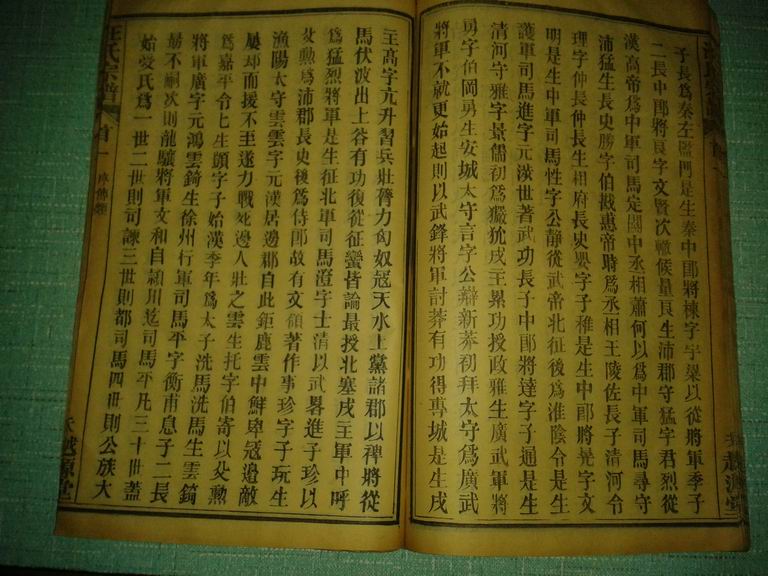 子長爲秦左監門是生秦中郎將棟字宇梁以從將軍季子
二長中郎將艮字文賢次轅候量艮生沛郡守猛字君烈從
漢高帝爲中軍司馬定國中丞相蕭何以爲中軍司馬尋守
沛猛生長史勝字伯戡惠帝時爲丞相王陵佐長子清河令
理字仲長仲長生相府長史嬰字子稚是生中郎將晃字文
明是生中軍司馬性字公靜從武帝北征後爲淮陰令是生
護軍司馬進字元漢世著武功長子中郎將達字子通是生
清河守雅字景儒初爲玁狁戌主累功授政雅生廣武軍將
勇字伯岡勇生安城太守言字公辯新莽初拜太守爲廣武
將軍不就更始起則以武鋒將軍討莽有功得專城是生戌
主高字亢升習兵壯膂力匈奴寇天水上黨諸郡以裨將從
馬伏波出上谷有功復從征蠻皆論最授北塞戌主軍中呼
爲猛烈將軍是生征北軍司馬澄字士清以武畧進子珍以
父勲爲沛郡長史後爲侍郎故有文領著作事珍字子玩生
漁陽太守雲雲字元漢居邊郡自此鉅鹿雲中鮮卑寇邉敵
屢却而援不至遂力戰死邊人壯之雲生托字伯寄以父勲
爲嘉平令七生顗字子始漢季年爲太子洗馬洗馬生雲錡
將軍廣字元鴻雲錡生徐州行軍司馬平字衡甫息子二長
勗不嗣次則龍驤將軍文和自潁川迄司馬平凡三十世蓋
始受氏爲一世二世則司諫三世則都司馬四世則公族大
汪氏宗譜
首一